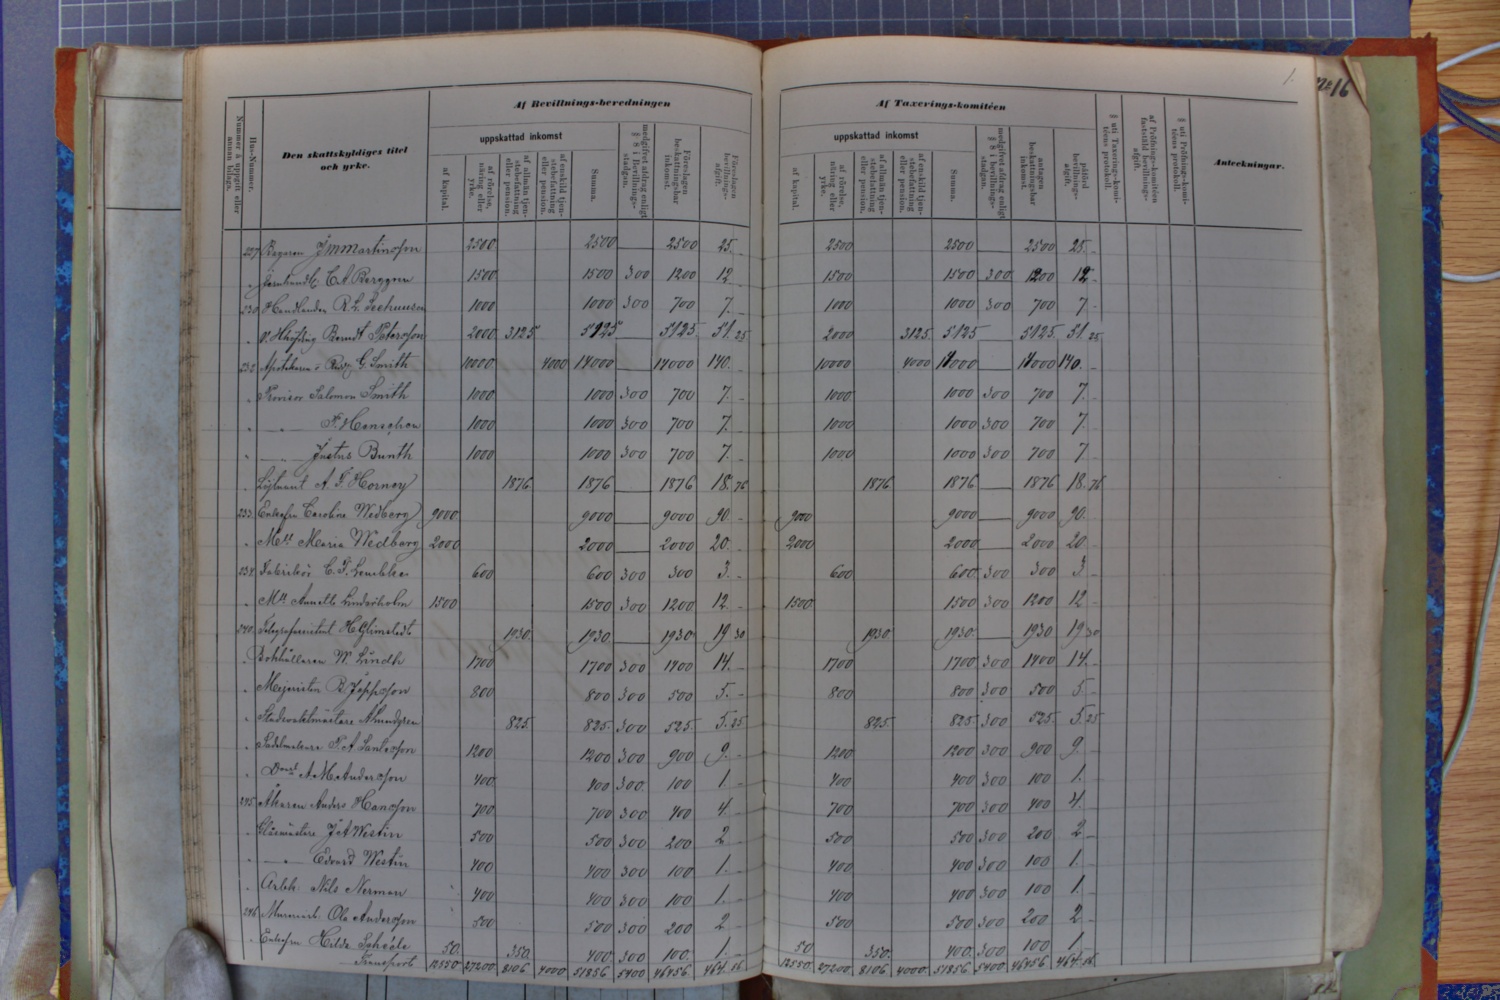 1.
No 16
Af Bevillnings-beredningen
Af Taxerings-komitéen
Nummer å uppgift eller
Hus-Nummer.
Den skattskyldiges titel
och yrke.
uppskattad inkomst
af kapital.
af rörelse, näring eller yrke.
af allmän tjenstebefattning eller pension.
af enskild tjenstebefattning eller pension.
Summa.
medgifvet afdrag enligt § 8 i Bevillnings-stadgan.
Föreslagen beskattningsbar inkomst.
Föreslagen bevillnings-afgift.
uppskattad inkomst
af kapital.
af rörelse, näring eller yrke.
af allmän tjenstebefattning eller pension.
af enskild tjenstebefattning eller pension.
Summa.
medgifvet afdrag enligt § 8 i bevillnings-stadgan.
antagen beskattningsbar inkomst.
påförd bevillnings-afgift.
§ uti Taxerings-komitéens protokoll.
af Pröfnings-komitéen fastställd bevillnings-afgift.
§ uti Pröfnings-komitéens protokoll.
Anteckningar.
227 Bagaren Martinsson 2500 2500 — 2500 25. - 2500 2500 — 2500 25. -
" C. A. Berggren 1500 1500 300 1200 12 - 1500 1500 300 1200 12 -
230 Handlanden R. L. 1000 1000 300 700 7. - 1000 1000 300 700 7 -
" Berndt Petersson 2000 3125 5125 — 5125 51. 25 2000 3125 5125 — 5125 51. 25
232 Apotekaren G. Smith 10000 4000 14000 — 14000 140. - 10000 4000 14000 — 14000 140. -
" Provisor Salomon Smith 1000 1000 300 700 7. - 1000 1000 300 700 7. -
" — " — 1000 1000 300 700 7. - 1000 1000 300 700 7. -
" — " — Justus Bunth 1000 1000 300 700 7. - 1000 1000 300 700 7 -
" Löjtnant A. G. Horney 1876 1876 — 1876 18. 76 1876 1876 — 1876 18. 76
233 Enkefru Caroline Wedberg 9000 9000 — 9000 90 - 9000 9000 — 9000 90. -
" Mll Maria Wedberg 2000 2000 — 2000 20. - 2000 2000 — 2000 20. -
Fabrikör C. F. 600 600 300 300 3. - 600 600 300 300 3 -
" Mll 1500 1500 300 1200 12. - 1500 1500 300 1200 12 -
240 1930 1930 — 1930 19 30 1930 1930 — 1930 19 30
" Bokhållaren W. Lindh 1700 1700 300 1400 14. - 1700 1700 300 1400 14. -
" Mejeristen B. Jeppsson 800 800 300 500 5. - 800 800 300 500 5. -
" 825 825 300 525 5. 25 825 825 300 525 5. 25
" Sadelmakare 1200 1200 300 900 9. - 1200 1200 300 900 9. -
" A. M. Andersson 400 400 300 100 1. - 400 400 300 100 1. -
245 Åkaren Anders Hansson 700 700 300 400 4. - 700 700 300 400 4. -
" Glasmästare J A Westin 500 500 300 200 2 - 500 500 300 200 2 -
" — " — Edvard Westin 400 400 300 100 1. - 400 400 300 100 1. -
" Arbk. Nils Nerman 400 400 300 100 1. - 400 400 300 100 1. -
246 Ola Andersson 500 500 300 200 2 - 500 500 300 200 2 -
" Enkefru Hilda Schéele 50. 350. 400 300 100. 1. - 50 350. 400. 300 100 1. -
Transport 12550 27200 8106 4000 51856 5400 46456 464. 56 12550 27200 8106 4000 51856 5400 46456 464. 56